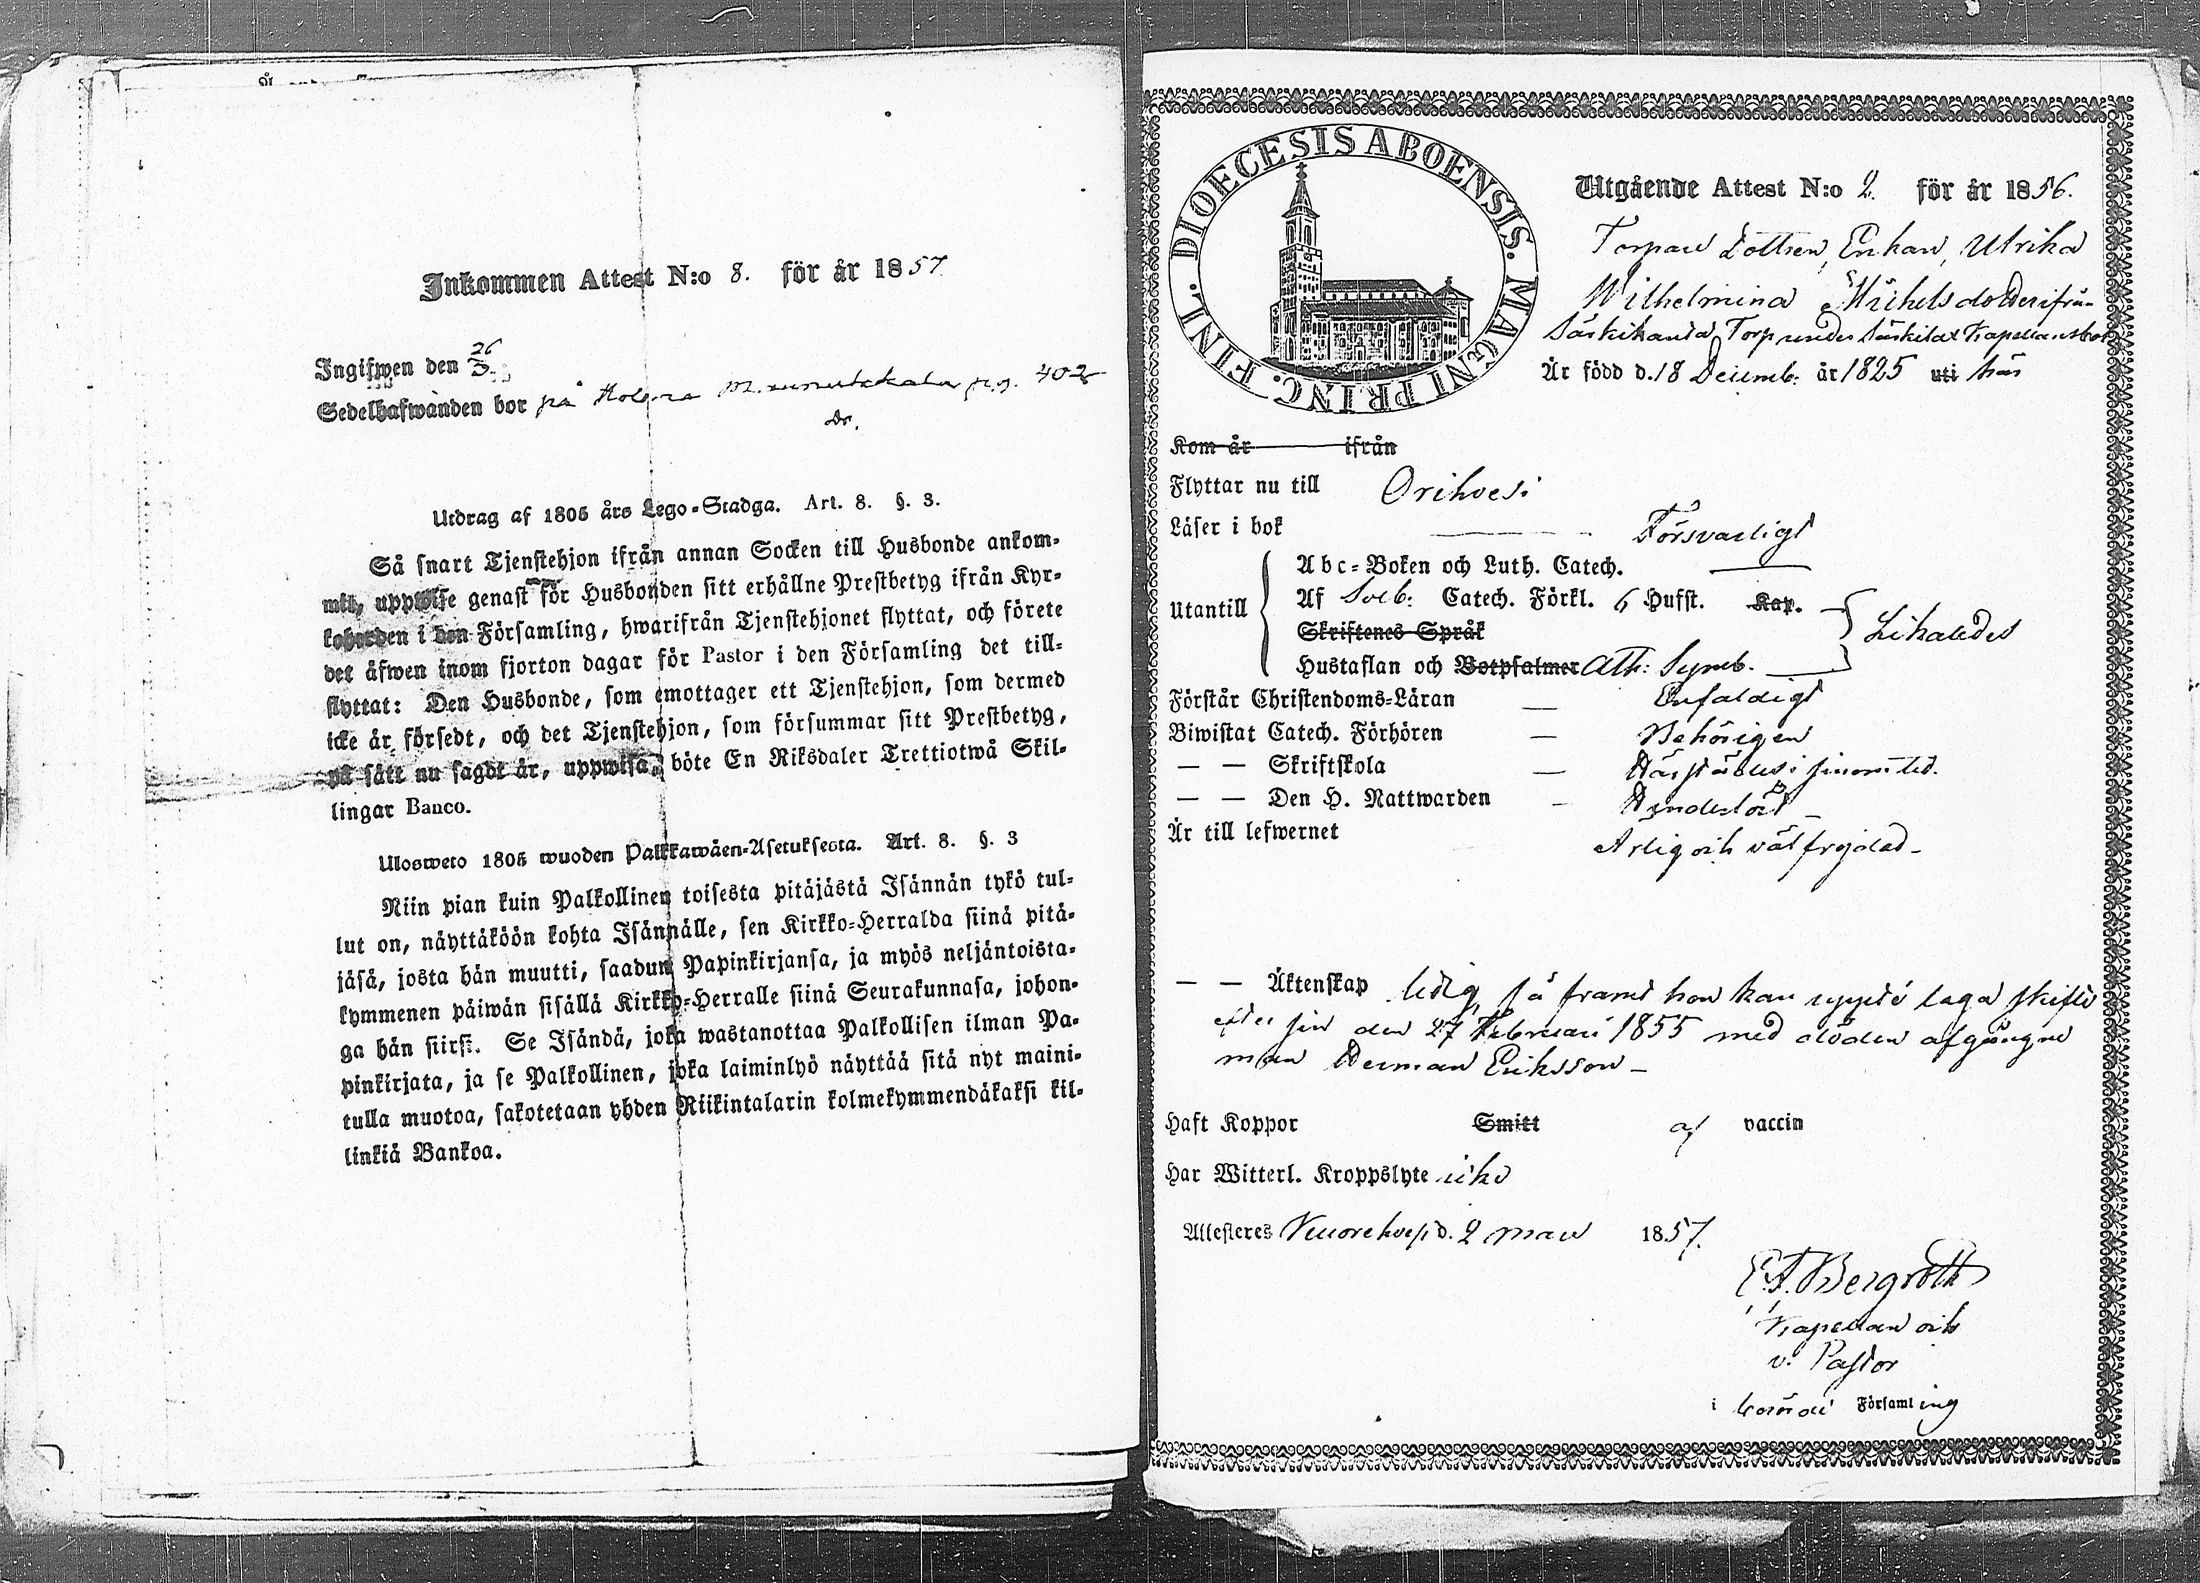 Inkommen Attest N:o 8. för år 1857
Ingifwen den 26/3
Sedelhafwanden bor på pag. 402
Utdrag af 1805 års Lego-Stadga. Art. 8. §. 3.
Så snart Tjenstehjon ifrån annan Socken till Husbonde ankom-
mit, uppwise genast för Husbonden sitt erhållne Prestbetyg ifrån Kyr-
koherden i den Församling, hwarifrån Tjenstehjonet flyttat, och förete
det äfwen inom fjorton dagar för Pastor i den Församling det till-
flyttat: Den Husbonde, som emottager ett Tjenstehjon, som dermed
icke är försedt, och det Tjenstehjon, som försummar sitt Prestbetyg,
på sätt nu sagdt är, uppwisa, böte En Riksdaler Trettiotwå Skil-
lingar Banco.
Ulosweto 1805 wuoden Palkkawäen-Asetuksesta. Art. 8. §. 3
Niin pian kuin Palkollinen toisesta pitäjästä Isännän tykö tul-
lut on, näyttäköön kohta Isännälle, sen Kirkko-Herralda siinä pitä-
jäsä, josta hän muutti, saadun Papinkirjansa, ja myös neljäntoista-
kymmenen päiwän sisällä Kirkko-Herralle siinä Seurakunnasa, johon-
ga hän siirsi. Se Isändä, joka wastanottaa Palkollisen ilman Pa-
pinkirjata, ja se Palkollinen, joka laiminlyö näyttää sitä nyt maini-
tulla muotoa, sakotetaan yhden Riikintalarin kolmekymmendäkaksi kil-
linkiä Bankoa.
DIOECESIS ABOENSIS. MAGNI PRINC. FINL.
Utgående Attest N:o 2. för år 1856.
Torpare Dottren, Enkan, Ulrika
Wilhelmina Michelsdotter ifrån
Torp under Kapellansbol
Är född d. 18 Decemb: år 1825 uti här
Kom år ifrån
Flyttar nu till Orihvesi
Läser i bok Försvarligt
Abc-Boken och Luth. Catech.
Utantill Af Sveb: Catech. Förkl. 6 Hufst. Kap. Likaledes
Skriftenes Språk
Hustaflan och Botpsalmer Ath: Symb.
Förstår Christendoms-Läran Enfaldigt
Biwistat Catech. Förhören Behörigen
— — Skriftskola Härstädes i sinom tid.
— — Den H. Nattwarden
Är till lefwernet Ärlig och välfrejdad
— — Äktenskap ledig, så framt hon kan uppté laga skifte
efter sin den 27 Februari 1855 med döden afgångne
man Herman Eriksson
Haft Koppor Smitt af vaccin
Har Witterl. Kroppslyte icke
Attesteres Kuorehvesi d. 2 mars 1857.
E. F. Bergroth
Kapellan och
v. Pastor
i Församling